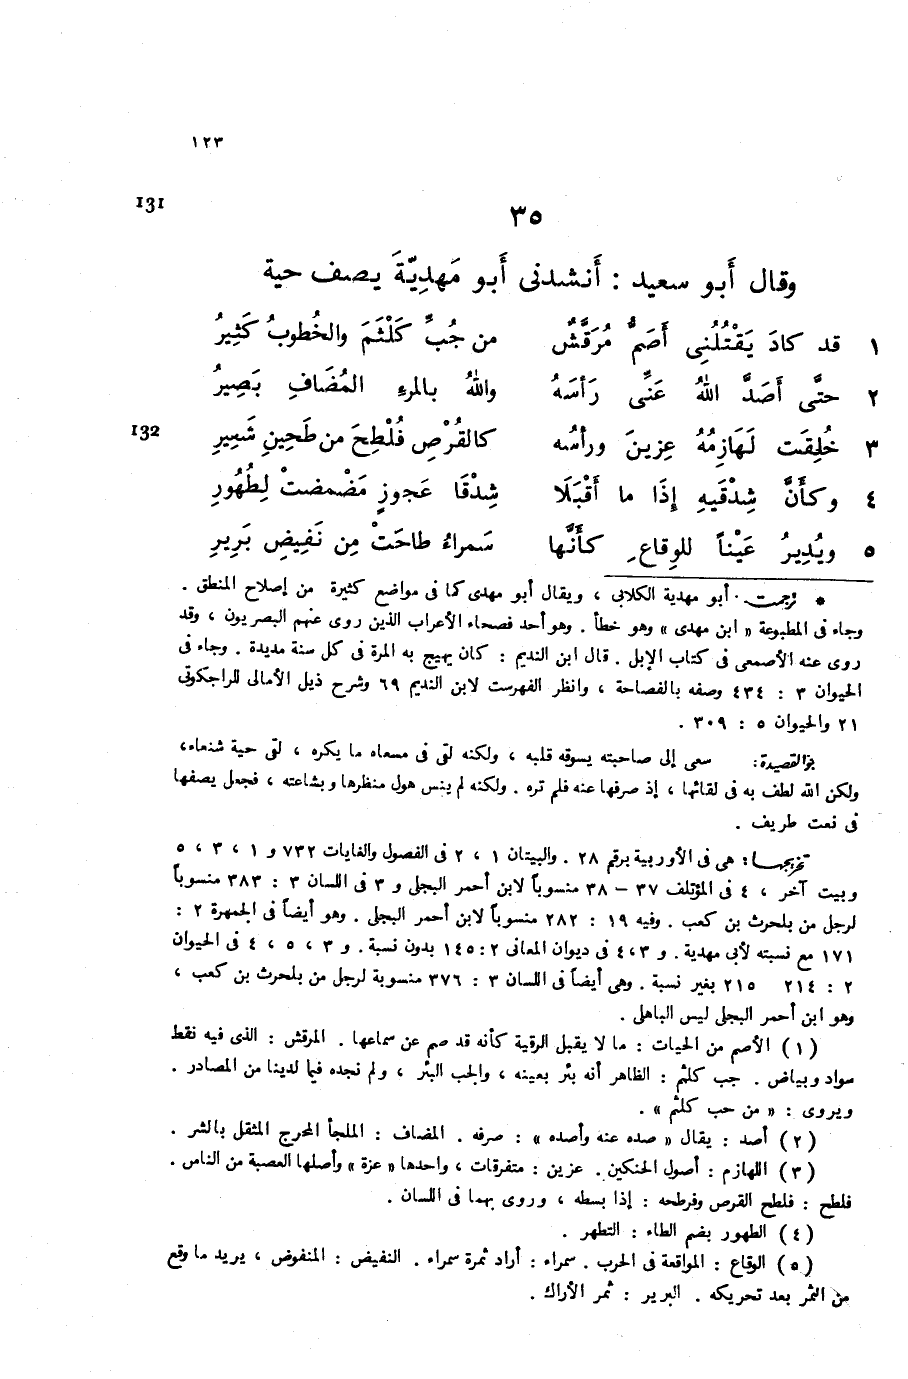 ١٢٣
131
٣٥
وقال أبو سعيد : أَنشدنى أَبو مَهدِيّةَ يصف حية
١ قد كادَ يَقْتُلُنِى أَصَمُّ مُرَقَّشٌ من جُبِّ كَلْثَمَ والخُطوبُ كَثِيرُ
٢ حتَّى أَصَدَّ اللهُ عَنِّى رَأسَهُ واللهُ بالمرءِ المُضَافِ بَصِيرُ
132
٣ خُلِقَت لَهَازِمُهُ عِزينَ ورأسُه كالقُرْصِ فُلْطِحَ من طَحِينِ شَعِيرِ
٤ وكأَنَّ شِدْقَيهِ إِذَا ما أَقْبَلَا شِدْقَا عَجوزٍ مَضْمضتْ لِطُهُورِ
٥ ويُدِيرُ عَيْناً للوِقاعِ كأَنَّها سَمراءُ طاحَتْ مِن نَفِيضِ بَرِيرِ
* ترجمته : أبو مهدية الكلابى ، ويقال أبو مهدى كما فى مواضع كثيرة من إصلاح المنطق .
وجاء فى المطبوعة « ابن مهدى » وهو خطأ . وهو أحد فصحاء الأعراب الذين روى عنهم البصريون ، وقد
روى عنه الأصمعى فى كتاب الإبل . قال ابن النديم : كان يهيج به المرة فى كل سنة مديدة . وجاء فى
الحيوان ٣ : ٤٣٤ وصفه بالفصاحة ، وانظر الفهرست لابن النديم ٦٩ وشرح ذيل الأمالى للراجكوتى
٢١ والحيوان ٥ : ٣٠٩ .
جو القصيدة : سعى إلى صاحبته يسوقه قلبه ، ولكنه لقى فى مسعاه ما يكره ، لقى حية شنعاء،
ولكن الله لطف به فى لقائها ، إذ صرفها عنه فلم تره . ولكنه لم ينس هول منظرها وبشاعته ، فجعل يصفها
فى نعت طريف .
تخريجها : هى فى الأوربية برقم ٢٨ . والبيتان ١ ، ٢ فى الفصول والغايات ٧٣٢ و ١ ، ٣ ، ٥
وبيت آخر ، ٤ فى المؤتلف ٣٧ – ٣٨ منسوباً لابن أحمر البجلى و ٣ فى اللسان ٣ : ٣٨٣ منسوباً
لرجل من بلحرث بن كعب . وفيه ١٩ : ٢٨٢ منسوباً لابن أحمر البجلى . وهو أيضاً فى الجمهرة ٢ :
١٧١ مع نسبته لأبى مهدية . و ٤،٣ فى ديوان المعانى ٢ : ١٤٥ بدون نسبة . و ٣ ، ٥ ، ٤ فى الحيوان
٢ : ٢١٤ ٢١٥ بغير نسبة . وهى أيضاً فى اللسان ٣ : ٣٧٦ منسوبة لرجل من بلحرث بن كعب ،
وهو ابن أحمر البجلى ليس الباهلى .
(١) الأصم من الحيات : ما لا يقبل الرقية كأنه قد صم عن سماعها . المرقش : الذى فيه نقط
سواد وبياض . جب كلثم : الظاهر أنه بئر بعينه ، والجب البئر ، ولم نجده فيما لدينا من المصادر .
ويروى : « من حب كلثم » .
(٢) أصد : يقال « صده عنه وأصده » : صرفه . المضاف : الملجأ المحرج المثقل بالشر .
(٣) اللهازم : أصول الحنكين . عزين : متفرقات ، واحدها « عزة » وأصلها العصبة من الناس .
فلطح : فلطح القرص وفرطحه : إذا بسطه ، وروى بهما فى اللسان .
(٤) الطهور بضم الطاء : التطهر .
(٥) الوقاع : المواقعة فى الحرب . سمراء : أراد ثمرة سمراء . النفيض : المنفوض ، يريد ما وقع
من الثمر بعد تحريكه . البرير : ثمر الأراك .